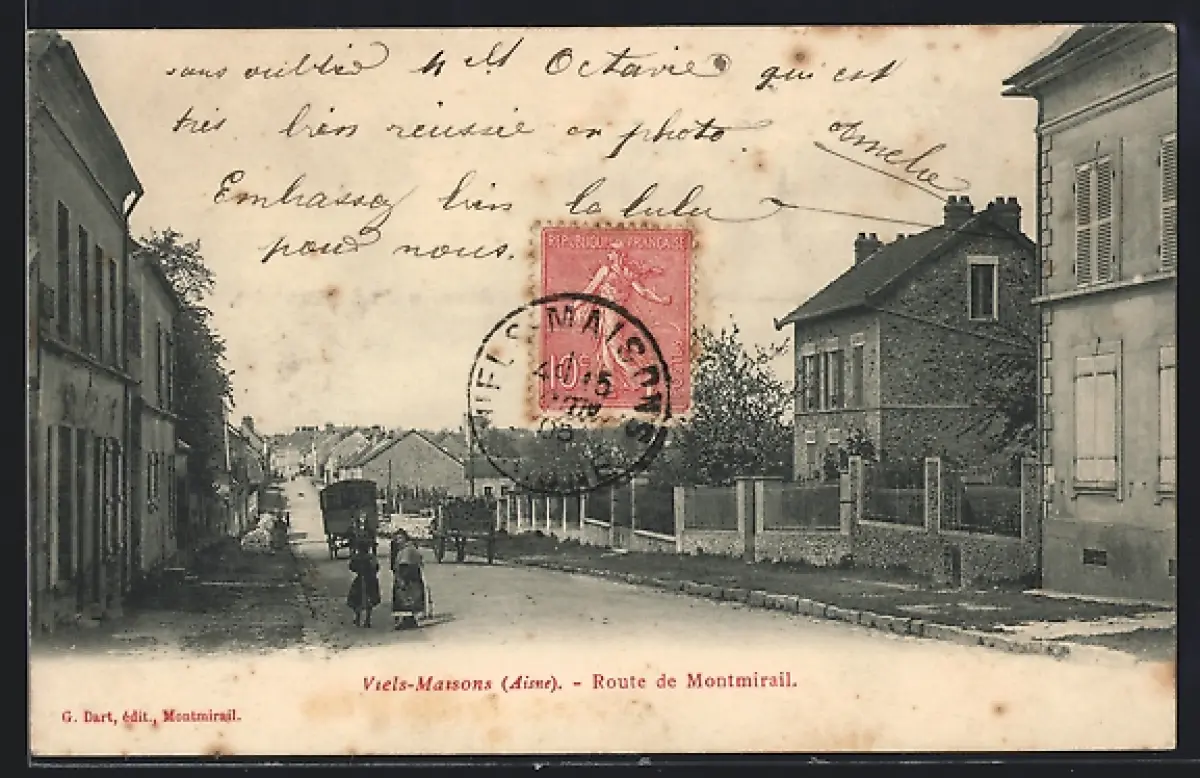 sans oublié Octavie qui est
très bien réussie en photo.
Embrassez bien la lulu
pour nous.
REPUBLIQUE FRANÇAISE
10c
VIELS-MAISONS
Viels-Maisons (Aisne). - Route de Montmirail.
G. Dart, édit., Montmirail.